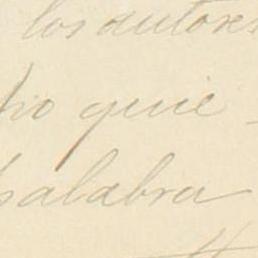 los autores
tio quie
palabra